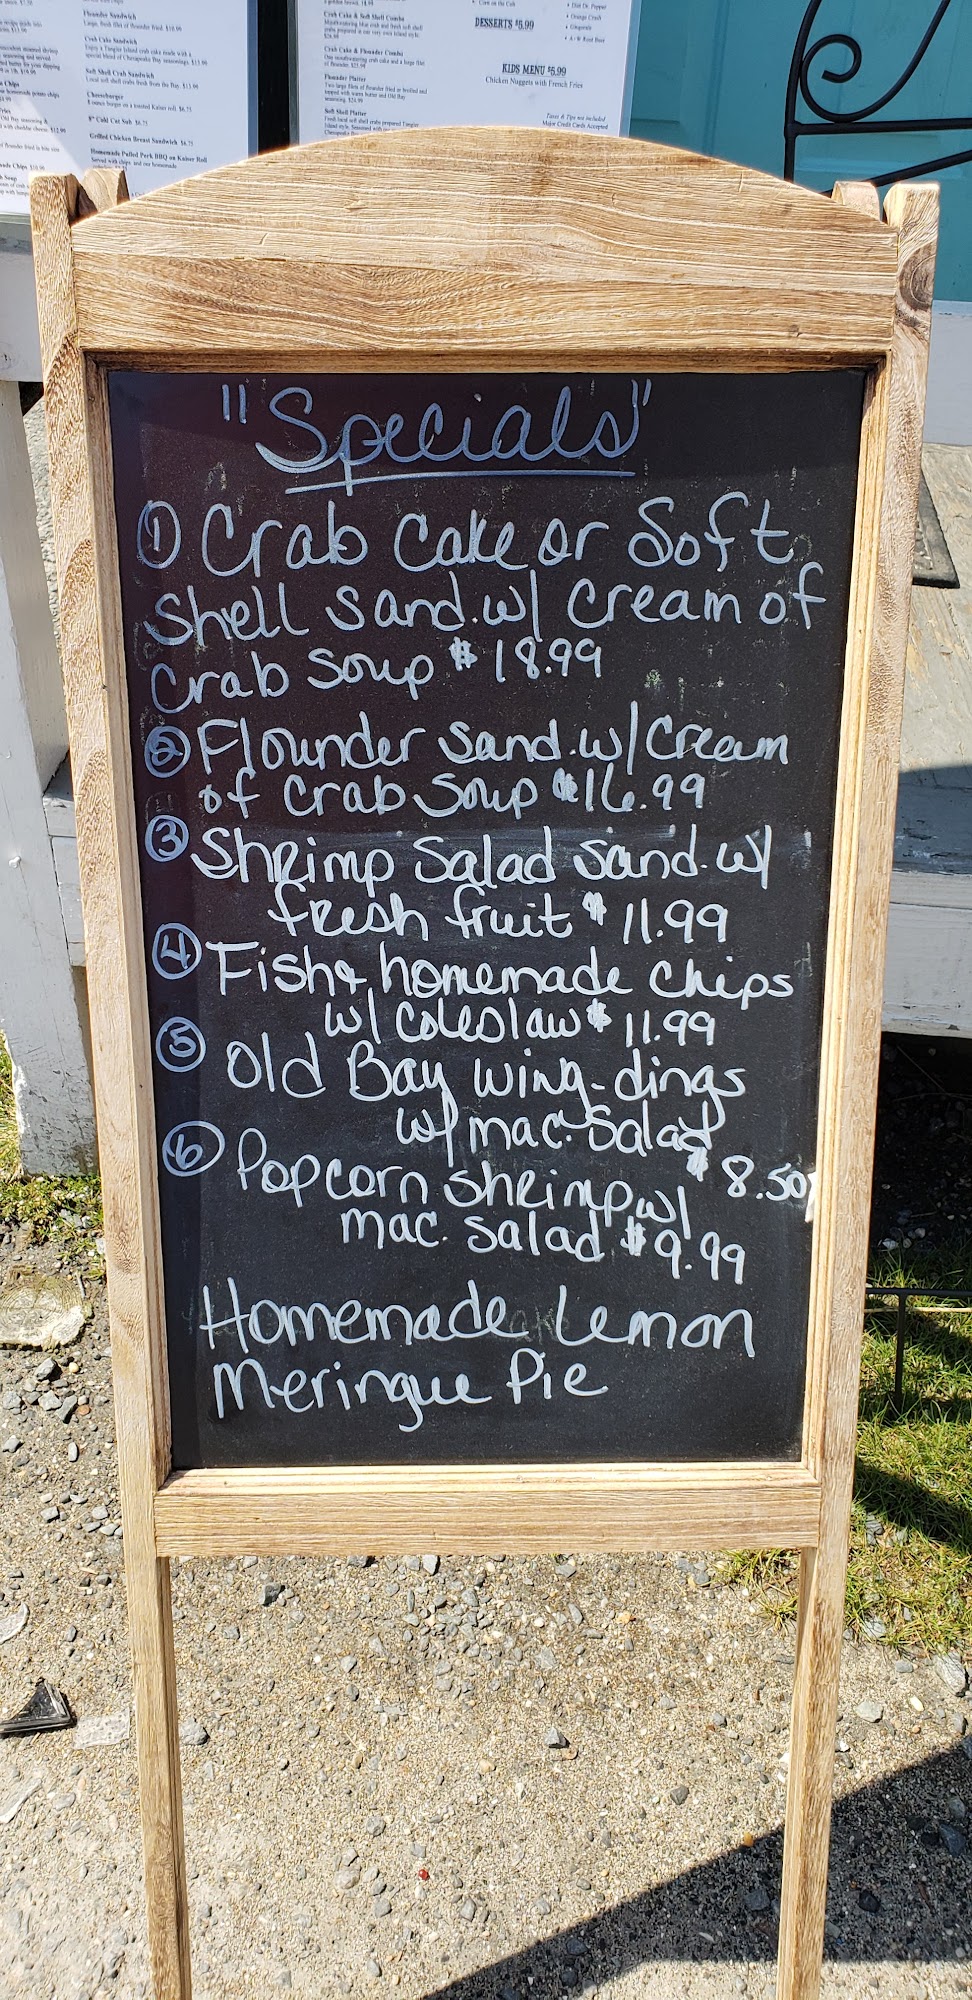 Flounder Sandwich
Large, fresh filet of flounder fried.
Crab Cake Sandwich
Enjoy a Tangier Island crab cake made with a
special blend of Chesapeake Bay seasonings. $13.99
Soft Shell Crab Sandwich
Local soft shell crabs fresh from the Bay. $13.99
Cheeseburger
8 ounce burger on a toasted Kaiser roll. $6.75
8" Cold Cut Sub $6.75
Grilled Chicken Breast Sandwich $6.75
Homemade Pulled Pork BBQ on Kaiser Roll
Served with chips and our homemade
Crab Cake & Soft Shell Combo
Crab Cake & Flounder Combo
One mouthwatering crab cake and a large filet
of flounder.
Flounder Platter
Two large filets of flounder fried or broiled and
topped with warm butter and Old Bay
seasoning.
Soft Shell Platter
• Corn on the Cob
DESSERTS $5.99
KIDS MENU $6.99
Chicken Nuggets with French Fries
• Diet Dr. Pepper
• Orange Crush
• Gingerale
• A+W Root Beer
Taxes & Tips not included
Major Credit Cards Accepted
"Specials"
① Crab Cake or Soft
Shell sand. w/ Cream of
Crab Soup $18.99
② Flounder sand. w/ Cream
of Crab Soup $16.99
③ Shrimp Salad sand. w/
fresh fruit $11.99
④ Fish & homemade chips
w/ coleslaw $11.99
⑤ Old Bay wing-dings
w/ mac. Salad
$8.50
⑥ Popcorn shrimp w/
mac. salad $9.99
Homemade Lemon
Meringue Pie